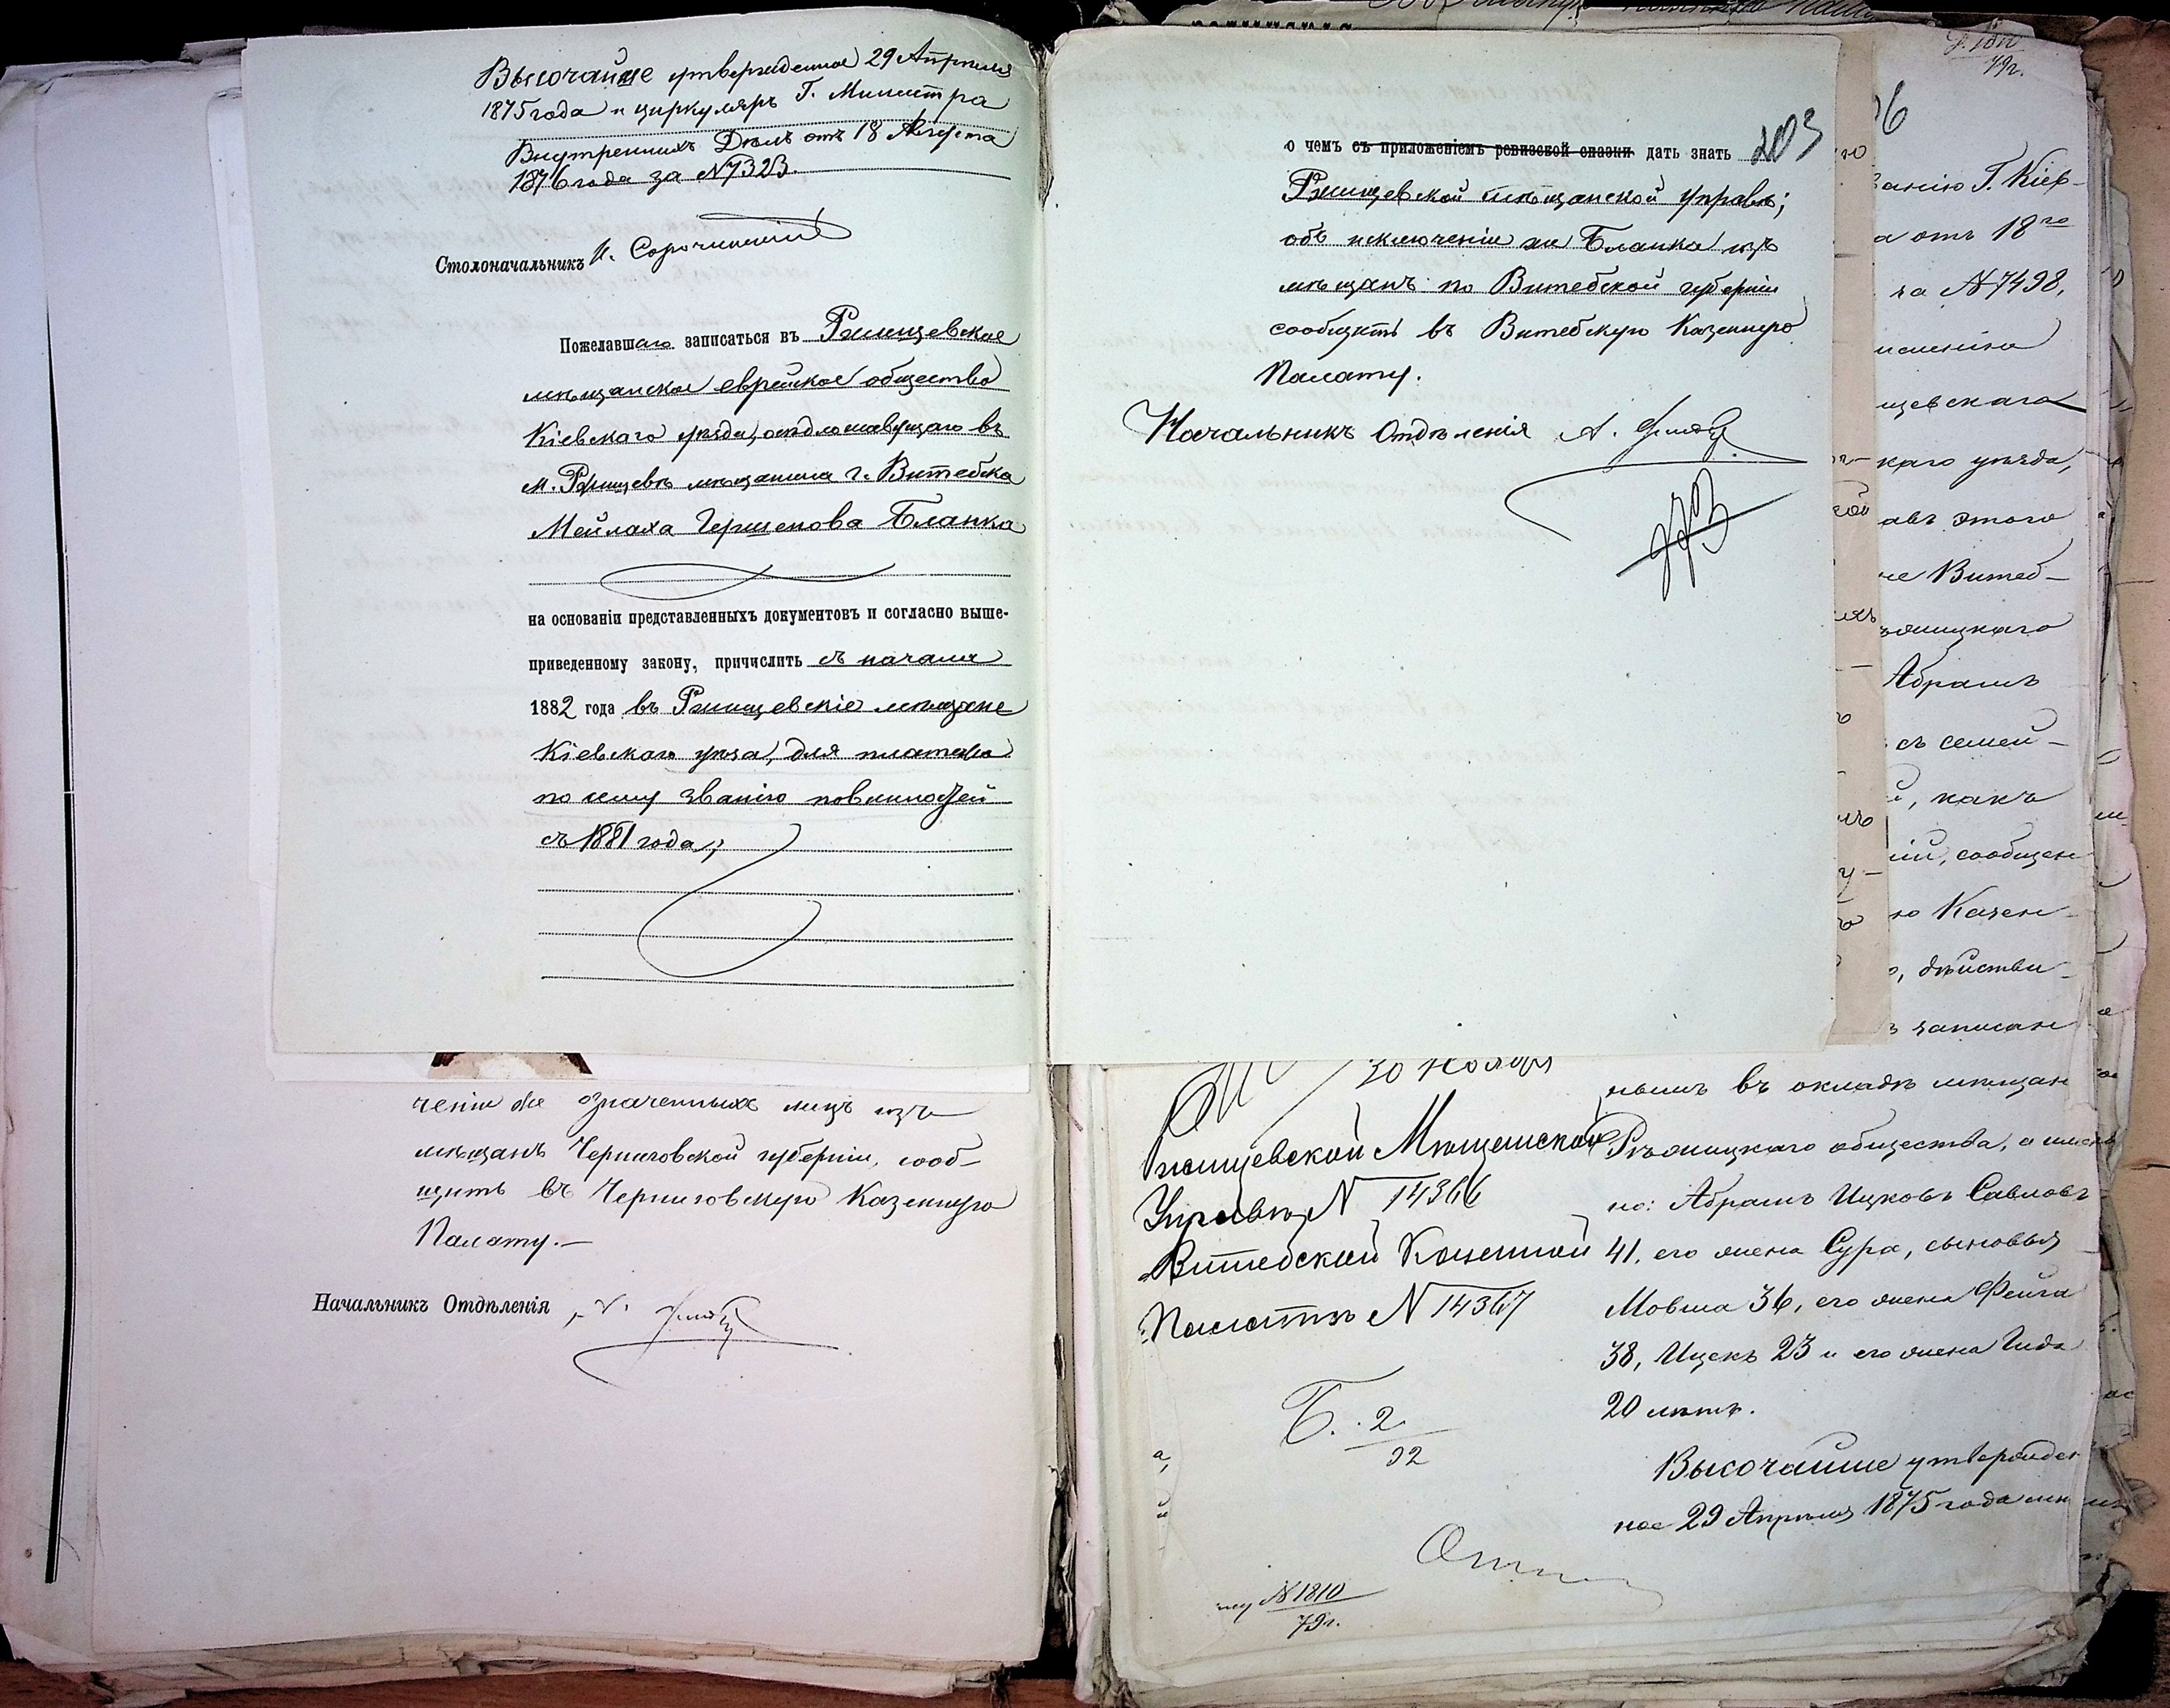 Высочайше утвержденное 29 Апреля
1875 года и циркуляръ Г. Министра
Внутреннихъ Дѣлъ отъ 18 Августа
1876 года за №7323.
Столоначальникъ
Пожелавшаго записаться въ Ржищевское
мѣщанское еврейское общество
Кіевскаго уѣзда, осѣдло живущаго въ
м. Ржищевѣ мѣщанина г. Витебска
Мейлаха Гершенова Бланка
на основаніи представленныхъ документовъ и согласно выше-
приведенному закону, причислить съ начала
1882 года въ Ржищевскіе мѣщане
Кіевскаго уѣзда, для платежа
по сему званію повинностей
съ 1881 года;
ченіи же означенныхъ лицъ изъ
мѣщанъ Черниговской губерніи, сооб-
щить въ Черниговскую Казенную
Палату.—
Начальникъ Отдѣленія
203
о чемъ съ приложеніемъ ревизской сказки дать знать
Ржищевской мѣщанской Управѣ;
объ исключеніи же Бланка изъ
мѣщанъ по Витебской губерніи
сообщить въ Витебскую Казенную
Палату.
Начальникъ Отдѣленія А.
79г.
анію Г. Кіев-
а отъ 18го
за №7498,
щевскаго
каго уѣзда,
авъ этого
не Витеб-
Абрамъ
съ семей-
, какъ
ніи, сообщен
ю Казен-
, дѣйстви-
записан
30 Ноября
Ржищевской Мѣщанской
Управѣ № 14366
Витебской Казенной
Палатѣ № 14367
Б. 2
32
№1810
79г.
нымъ въ окладѣ мѣщан
Рѣжицкаго общества, а имен
но: Абрамъ Ицковъ Савловъ
41, его жена Сура, сыновья
Мовша 36, его жена Фейга
38, Ицекъ 23 и его жена Гида
20 лѣтъ.
Высочайше утвержден
ное 29 Апрѣля 1875 года мн